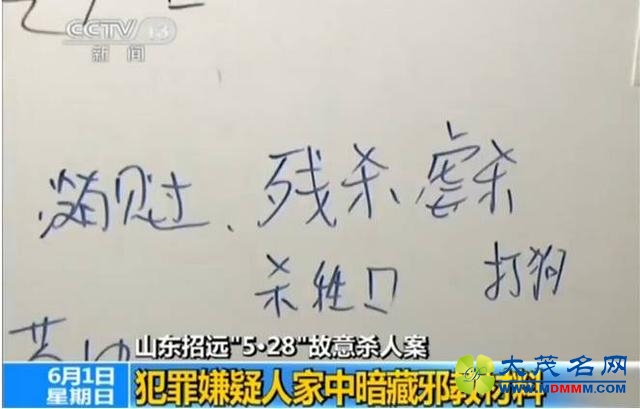 CCTV 13
新闻
没有见过、残杀 虐杀
杀牲口 打狗
山东招远"5·28"故意杀人案
6月1日
星期日
犯罪嫌疑人家中暗藏邪教材料
大茂名网
WWW.MDMMM.COM